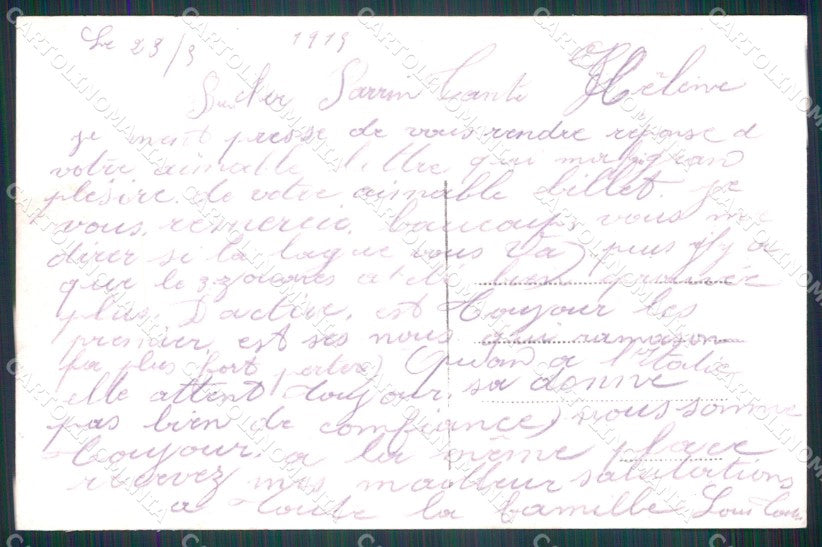 Le 23/3 1915
Hélène
je ment presse de vous rendre reponse a
votre aimable lettre qui ma gran
plesire de votre aimable billet. je
vous remercie beaucoup vous me
direr si la lague vous va) puis j'y a
que le zzouaves
plus D'active, est toujour les
premier. est ses nous qui ramason
la plus fort perte) quan a l'Italie
elle attent toujour, sa donne
pas bien de comfiance) nous somme
toujour, a la même place
recevez mes meilleur salutations
a toute la familles Louis
CARTOLINOMANIA